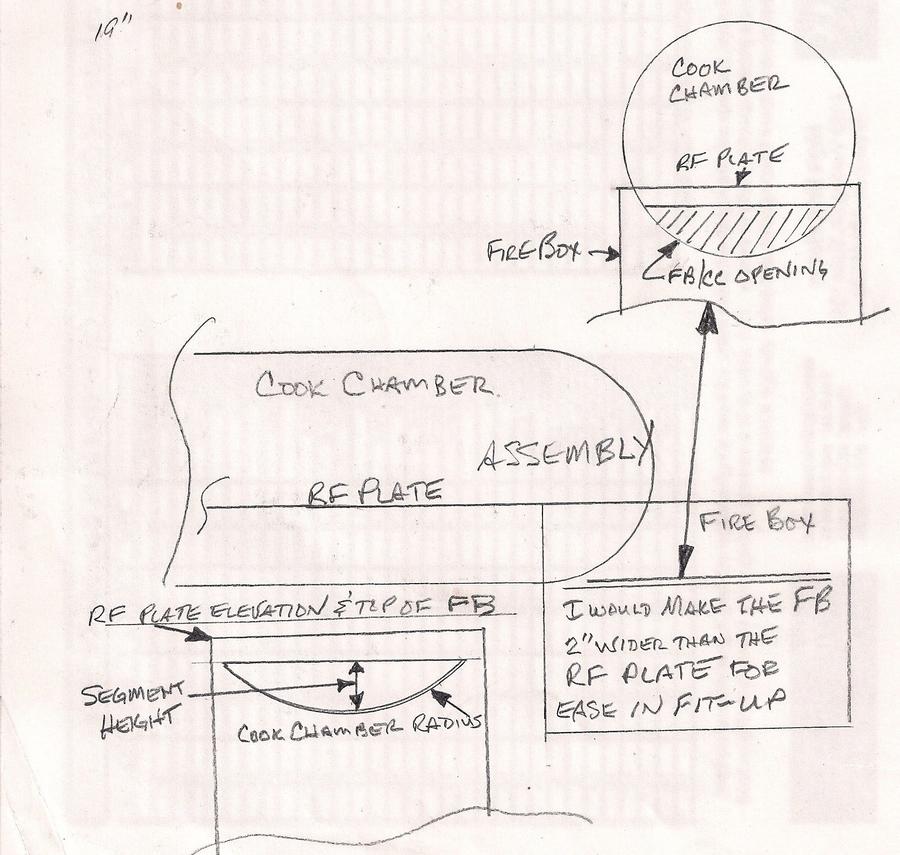 19"
COOK
CHAMBER
RF PLATE
FIRE BOX
FB/CC OPENING
COOK CHAMBER
ASSEMBLY
RF PLATE
FIRE BOX
I WOULD MAKE THE FB
2" WIDER THAN THE
RF PLATE FOR
EASE IN FIT-UP
RF PLATE ELEVATION & TOP OF FB
SEGMENT
HEIGHT
COOK CHAMBER RADIUS